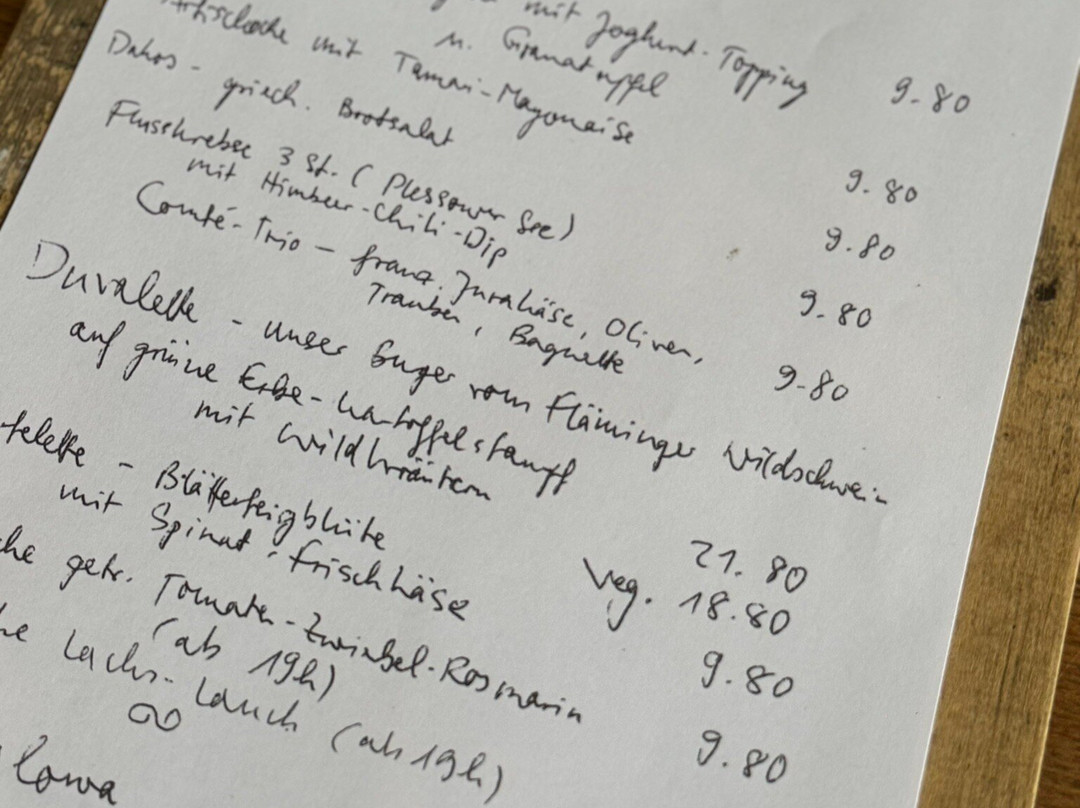 mit Joghurt-Topping
m. Granatapfel 9.80
Artischocke mit Tamari-Mayonaise 9.80
Dakos - griech. Brotsalat 9.80
Flusskrebse 3 St. (Plessower See)
mit Himbeer-Chili-Dip 9.80
Comté-Trio - franz. Jurakäse, Oliven,
Trauben, Baguette 9.80
Duvalette - unser Burger vom Fläminger Wildschwein
auf grüne Erbse-Kartoffelstampf
mit Wildkräutern 21.80
Veg. 18.80
telette - Blätterteigblüte
mit Spinat-Frischkäse 9.80
che getr. Tomaten-Zwiebel-Rosmarin
(ab 19h) 9.80
he Lachs-Lauch (ab 19h)